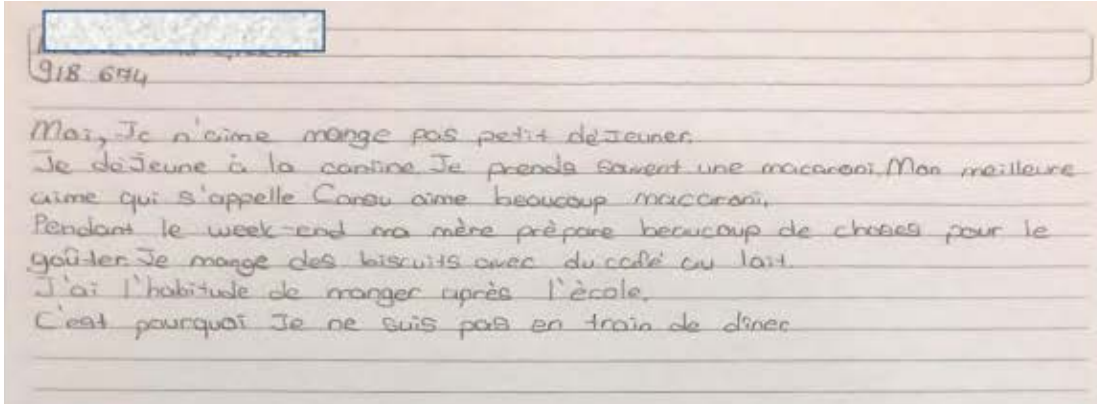 918 674
Moi, Je n'aime mange pas petit déJeuner.
Je déJeune à la cantine Je prends savent une macaroni. Mon meilleure
aime qui s'appelle Cansu aime beaucoup maccaroni.
Pendant le week-end ma mère prèpare beaucoup de choses pour le
goûter Je mange des biscuits avec du café au lait.
J'ai l'habitude de manger après l'ècole.
C'est pourquoi Je ne suis pas en train de dîner